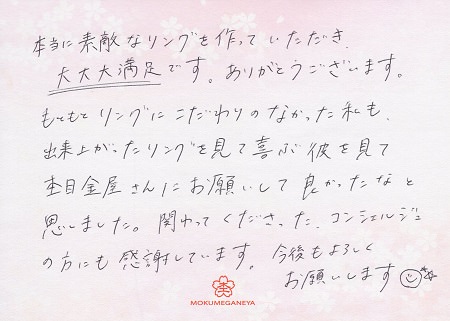 本当に素敵なリングを作っていただき、
大大大満足です。ありがとうございます。
もともとリングにこだわりのなかった私も、
出来上がったリングを見て喜ぶ彼を見て
杢目金屋さんにお願いして良かったなと
思いました。関わってくださった、コンシェルジュ
の方にも感謝しています。今後もよろしく
お願いします
MOKUMEGANEYA